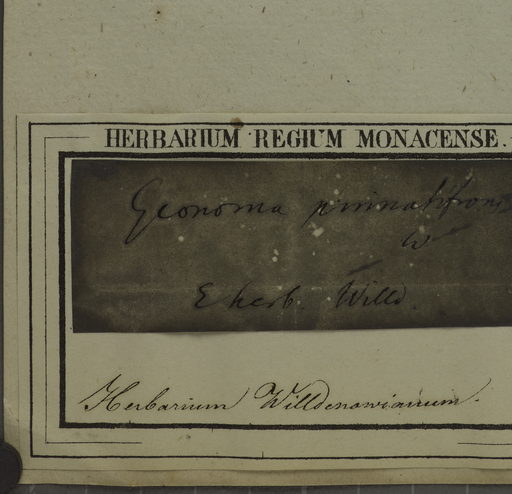 HERBARIUM REGIUM MONACENSE.
Geonoma pinnatifrons
W
E herb. Willd.
Herbarium Willdenowianum.